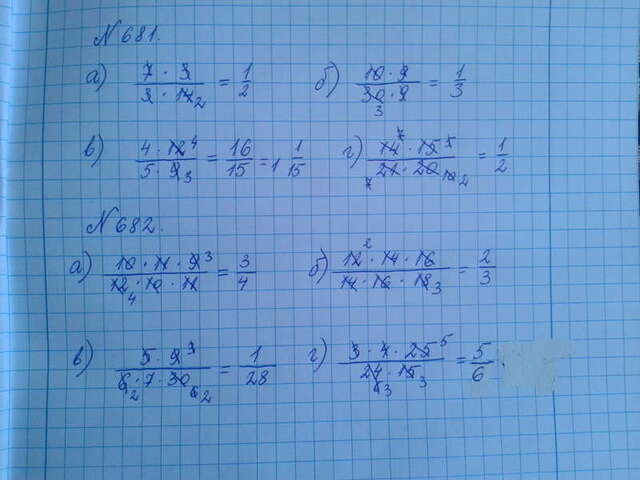 № 681.
а) 7 · 3 / 3 · 14 2 = 1/2 б) 10 · 9 / 30 3 · 9 = 1/3
в) 4 · 12 4 / 5 · 9 3 = 16/15 = 1 1/15 г) 14 7 · 15 5 / 7 21 · 20 10 2 = 1/2
№ 682.
а) 10 · 11 · 9 3 / 12 4 · 10 · 11 = 3/4 б) 12 2 · 14 · 16 / 14 · 16 · 18 3 = 2/3
в) 5 · 9 3 / 6 2 · 7 · 30 6 2 = 1/28 г) 3 · 4 · 25 5 / 24 6 3 · 15 3 = 5/6.